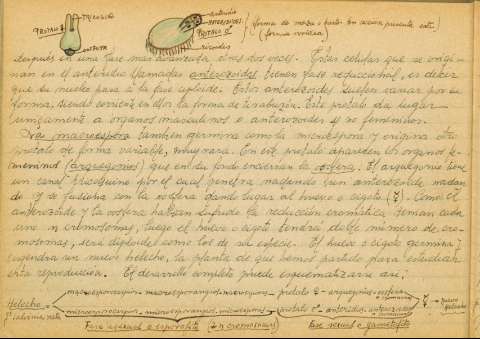 arquegonio
PROTALO ♀
anteridios
ANTEROZOIDES
PROTALO ♂
rizoides
(forma de
después en una fase más avanzada otras dos veces. Estas células que se origi-
nan en el anteridio llamadas anterozoides tienen fase reduccional, es decir
que su núcleo pasa a la fase aploide. Estos anterozoides suelen variar por su
forma, siendo corriente en ellos la forma de tirabuzón. Este protalo da lugar
únicamente a órganos masculinos o anterozoides y no femeninos.
La macrospora también germina como la microspora y origina otro
protalo de forma variable, muy rara. En este protalo aparecen los órganos fe-
meninos (arquegonios) que en su fondo encierran la oosfera. El arquegonio tiene
un canal por el cual penetra nadando un anterozoide
y se fusiona con la oosfera dando lugar al huevo o cigoto. Como el
anterozoide y la oosfera habían sufrido la reducción cromática tenían cada
uno n cromosomas, luego el huevo o cigoto tendrá doble número de cro-
mosomas, será diploide como tal de su especie. El huevo o cigoto germina y
engendra un nuevo helecho, la planta de que hemos partido para estudiar
esta reproducción. El desarrollo completo puede esquematizarse así:
macrosporangios - macrosporas - protalo ♀ - arquegonios - oosfera
Helecho
nuevo Helecho
microsporangios - microsporas - protalo ♂ - anteridios, anterozoides
Fase asexual o esporofito (2n cromosomas)
Fase sexual o gametofito